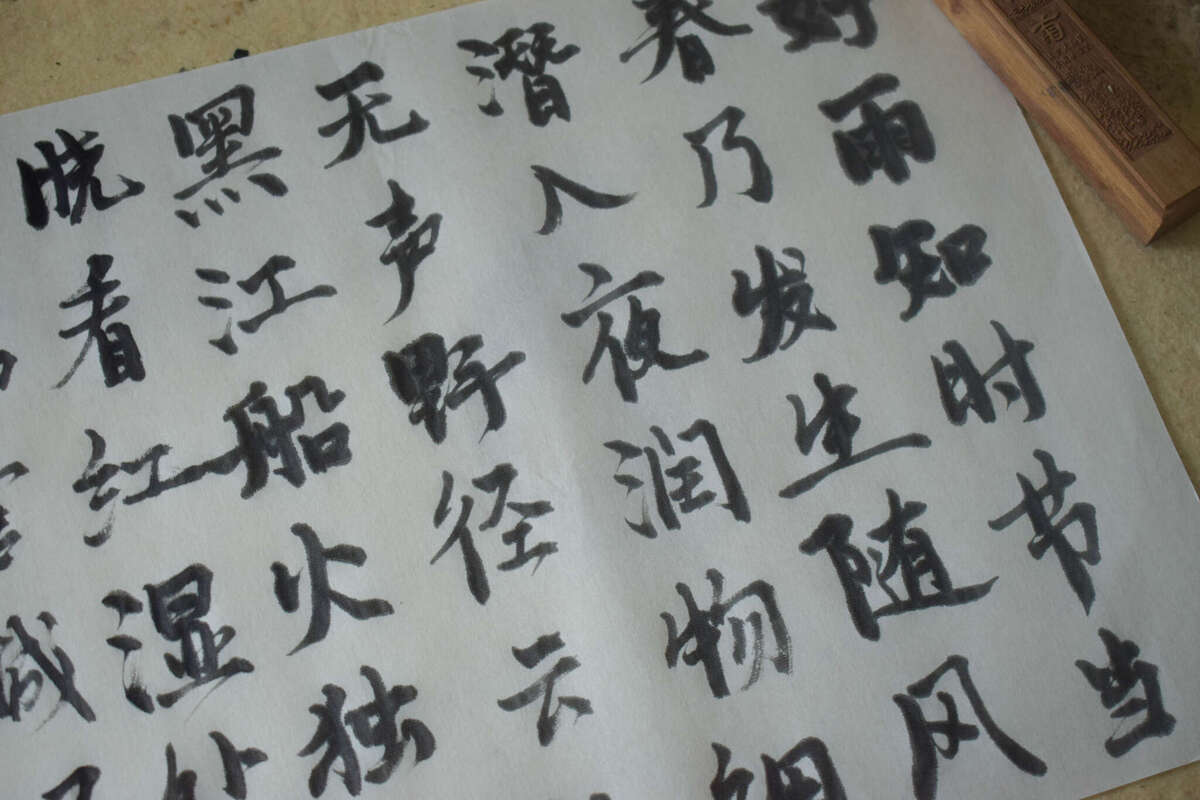 好雨知时节当
春乃发生随风
潜入夜润物细
无声野径云
黑江船火独
晓看红湿处